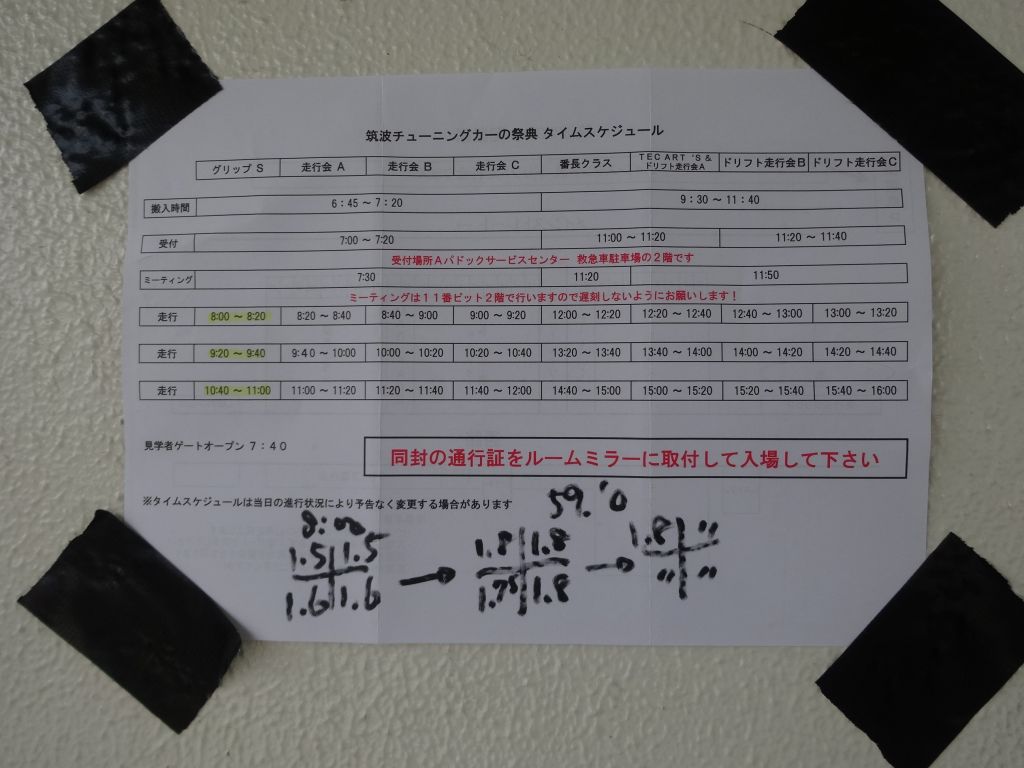 筑波チューニングカーの祭典 タイムスケジュール
グリップ S 走行会 A 走行会 B 走行会 C 番長クラス TEC ART 'S & ドリフト走行会A ドリフト走行会B ドリフト走行会C
搬入時間 6:45 ～ 7:20 9:30 ～ 11:40
受付 7:00 ～ 7:20 11:00 ～ 11:20 11:20 ～ 11:40
受付場所Aパドックサービスセンター 救急車駐車場の2階です
ミーティング 7:30 11:20 11:50
ミーティングは11番ピット2階で行いますので遅刻しないようにお願いします！
走行 8:00 ～ 8:20 8:20 ～ 8:40 8:40 ～ 9:00 9:00 ～ 9:20 12:00 ～ 12:20 12:20 ～ 12:40 12:40 ～ 13:00 13:00 ～ 13:20
走行 9:20 ～ 9:40 9:40 ～ 10:00 10:00 ～ 10:20 10:20 ～ 10:40 13:20 ～ 13:40 13:40 ～ 14:00 14:00 ～ 14:20 14:20 ～ 14:40
走行 10:40 ～ 11:00 11:00 ～ 11:20 11:20 ～ 11:40 11:40 ～ 12:00 14:40 ～ 15:00 15:00 ～ 15:20 15:20 ～ 15:40 15:40 ～ 16:00
見学者ゲートオープン 7:40
同封の通行証をルームミラーに取付して入場して下さい
※タイムスケジュールは当日の進行状況により予告なく変更する場合があります
8:00
1.5 1.5 → 1.8 1.8 → 1.8 〃
1.6 1.6 1.75 1.8 〃 〃